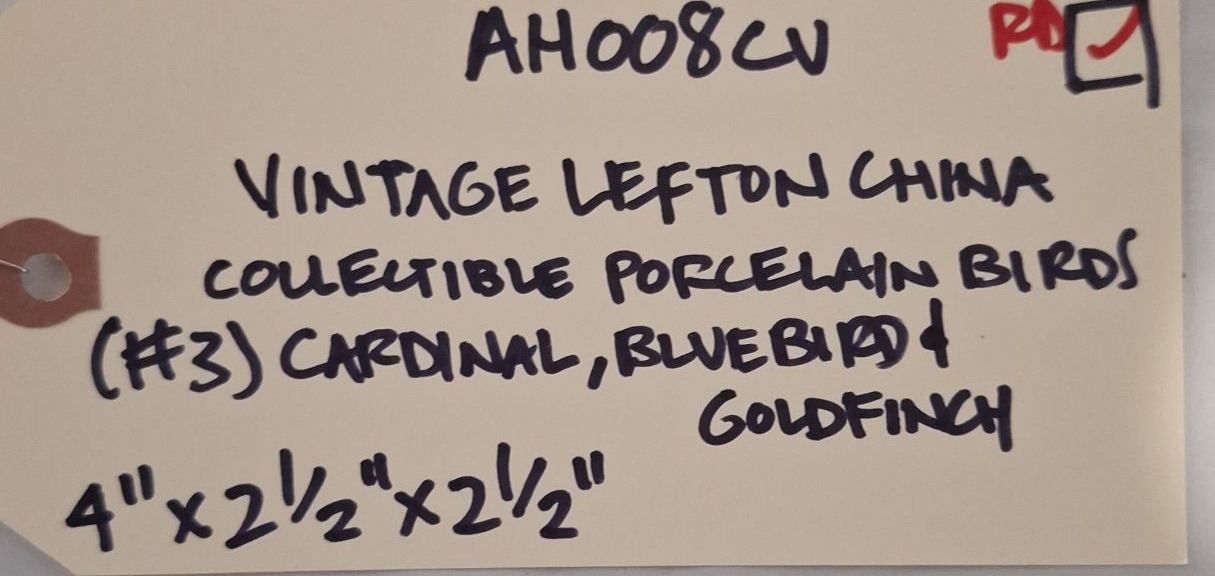 AH008CV
RD ✓
VINTAGE LEFTON CHINA
COLLECTIBLE PORCELAIN BIRDS
(#3) CARDINAL, BLUEBIRD &
GOLDFINCH
4" x 2 1/2" x 2 1/2"